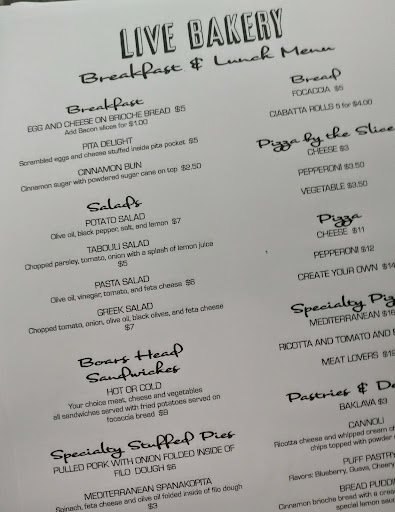 LIVE BAKERY
Breakfast & Lunch Menu
Breakfast
EGG AND CHEESE ON BRIOCHE BREAD $5
Add Bacon slices for $1.00
PITA DELIGHT
Scrambled eggs and cheese stuffed inside pita pocket $5
CINNAMON BUN
Cinnamon sugar with powdered sugar cane on top $2.50
Salads
POTATO SALAD
Olive oil, black pepper, salt, and lemon $7
TABOULI SALAD
Chopped parsley, tomato, onion with a splash of lemon juice
$5
PASTA SALAD
Olive oil, vinegar, tomato, and feta cheese $6
GREEK SALAD
Chopped tomato, onion, olive oil, black olives, and feta cheese
$7
Boars Head
Sandwiches
HOT OR COLD
Your choice meat, cheese and vegetables
all sandwiches served with fried potatoes served on
focaccia bread $9
Specialty Stuffed Pies
PULLED PORK WITH ONION FOLDED INSIDE OF
FILO DOUGH $6
MEDITERRANEAN SPANAKOPITA
Spinach, feta cheese and olive oil folded inside of filo dough
$3
Bread
FOCACCIA $5
CIABATTA ROLLS 5 for $4.00
Pizza by the Slice
CHEESE $3
PEPPERONI $3.50
VEGETABLE $3.50
Pizza
CHEESE $11
PEPPERONI $12
CREATE YOUR OWN $14
Specialty Piz
MEDITERRANEAN $16
RICOTTA AND TOMATO AND
MEAT LOVERS
Pastries & De
BAKLAVA $3
CANNOLI
Ricotta cheese and whipped cream
chips topped with powder
PUFF PASTRY
Flavors: Blueberry, Guava, Cheery
BREAD PUDDI
Cinnamon brioche bread with a
special lemon